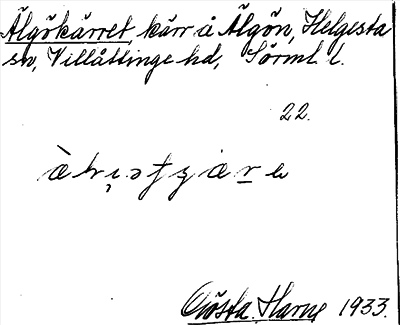 Älgökärret, kärr å Älgön, Helgesta
sn, Villåttinge hd, Sörml. l.
22.
Gösta Harne 1933.